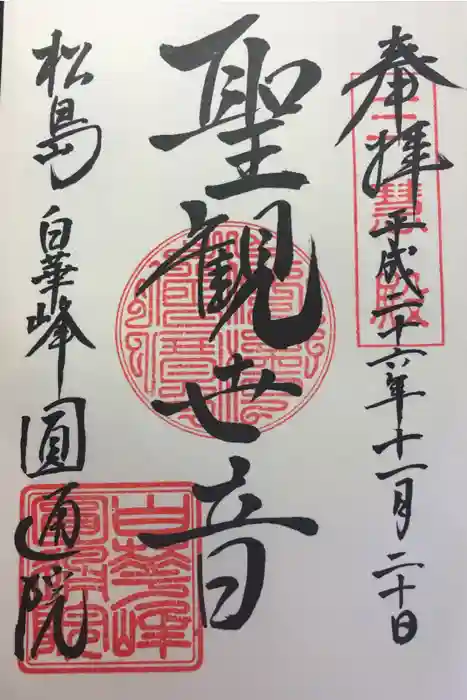 奉拝 平成二十六年十一月二十日
聖観世音
松島 白華峰 圓通院
白華峰